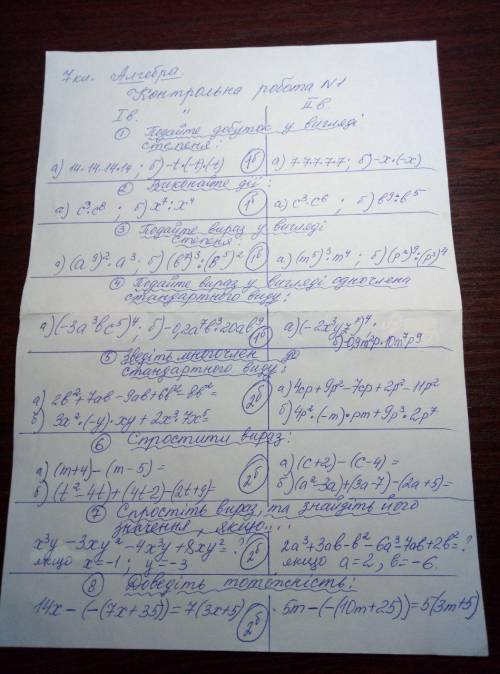 7кл. Алгебра
Контрольна робота N1
Iв. IIв
① Подайте добуток у вигляді
степеня:
а) 14·14·14·14; б) -t·(-t)·(t) 1б а) 7·7·7·7·7; б) -x·(-x)
② Виконайте дії:
а) c³·c⁸; б) x⁷:x⁴ 1б а) c³·c⁶; б) в⁹:в⁵
③ Подайте вираз у вигляді
степеня:
а) (a⁹)²·a³; б) (в⁷)³:(в⁵)² 1б а) (m⁵)³·m⁴; б) (p²)⁹:(p³)⁴
④ Подайте вираз у вигляді одночлена
стандартного виду:
а) (-3a³вc⁵)⁴; б) -0,2a⁷в³·20aв⁹ 1б а) (-2x³y²z)⁴;
б) -0,9m²p·10m⁷p⁹
⑤ Зведіть многочлен до
стандартного виду:
а) 2в²+7aв-9aв+6в²-8в²= 2б а) 4cp+9p²-7cp+2p²-11p²
б) 3x²·(-y)·xy+2x³·7x⁵= б) 4p²·(-m)·pm+9p³·2p⁷
⑥ Спростити вираз:
а) (m+4)-(m-5)= 2б а) (c+2)-(c-4)=
б) (t²-4t)+(4t-2)-(2t+9)= б) (a²-3a)+(3a-7)-(2a+5)=
⑦ Спростіть вираз, та знайдіть його
значення, якщо...
x³y-3xy²-4x³y+8xy²=? 2б 2a³+3aв-в²-6a³-7aв+2в²=?
якщо x=-1; y=-3 якщо a=2, в=-6.
⑧ Доведіть тотожність:
14x-(-(7x+35))=7(3x+5) 2б 5m-(-(10m+25))=5(3m+5)